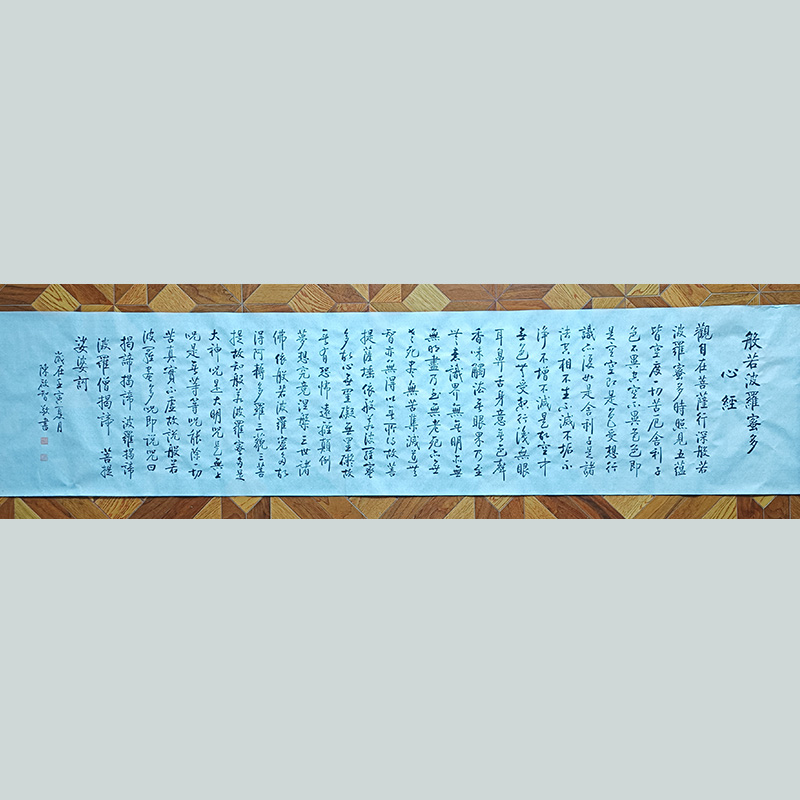 般若波羅蜜多
心經
觀自在菩薩行深般若
波羅蜜多時照見五蘊
皆空度一切苦厄舍利子
色不異空空不異色色即
是空空即是色受想行
識亦復如是舍利子是諸
法空相不生不滅不垢不
淨不增不減是故空中
無色無受想行識無眼
耳鼻舌身意無色聲
香味觸法無眼界乃至
無意識界無無明亦無
無明盡乃至無老死亦無
老死盡無苦集滅道無
智亦無得以無所得故菩
提薩埵依般若波羅蜜
多故心無罣礙無罣礙故
無有恐怖遠離顛倒
夢想究竟涅槃三世諸
佛依般若波羅蜜多故
得阿耨多羅三藐三菩
提故知般若波羅蜜多是
大神咒是大明咒是無上
咒是無等等咒能除一切
苦真實不虛故說般若
波羅蜜多咒即說咒曰
揭諦揭諦 波羅揭諦
波羅僧揭諦 菩提
娑婆訶
歲在壬寅夏月
陳 敬書